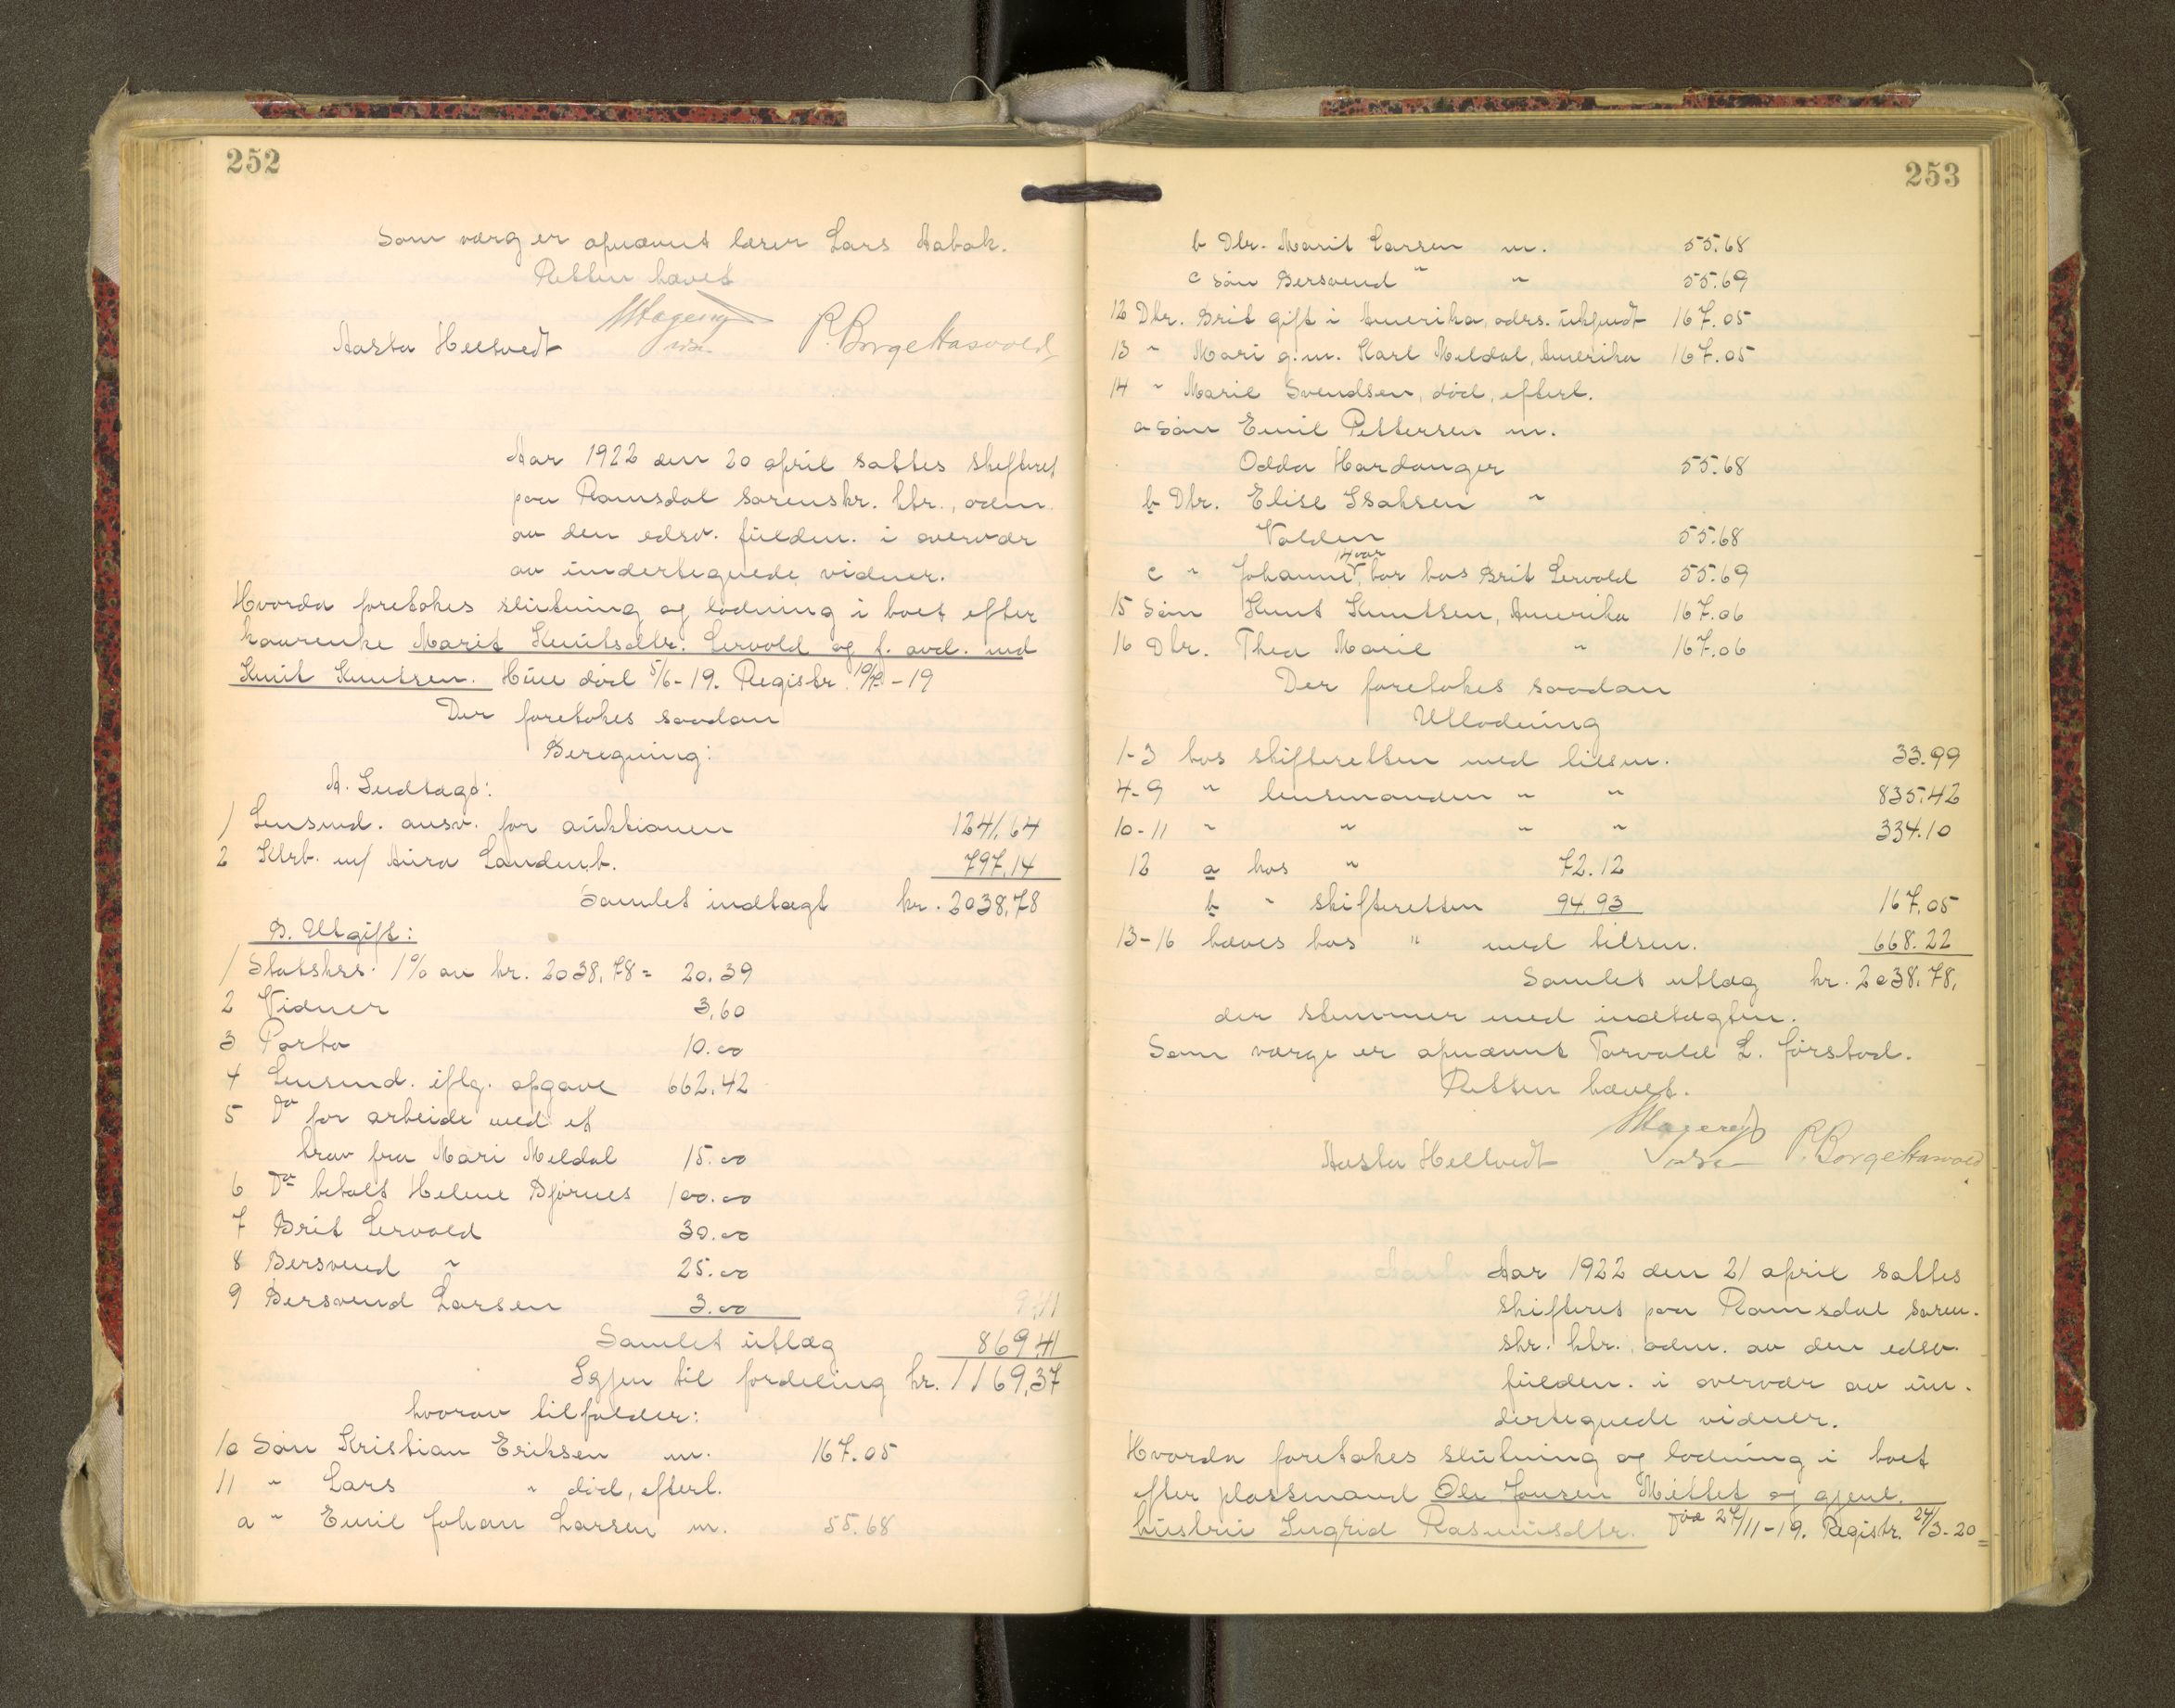 252
Som værg er opnævnt lærer Lars Aabak.
Retten hævet
Aasta Heltvedt P. Borge Hasvold
Aar 1922 den 20 april sattes skifteret
paa Romsdal sorenskr. ktr., adm.
av den edsv. fuldm. i overvær
av undertegnede vidner.
Hvorda foretokes slutning og lodning i boet efter
kaarenke Marit Knutsdtr. Lervold og f. avd. md
Knut Knutsen. Hun död 5/6-19. Registr. 10/7-19
Der foretokes saadan
Beregning:
A. Indtægt:
1 Lensmd. ansv. for auktionen 1241,64
2 Kbrb. m/ Aura Landmb. 797,14
Samlet indtægt kr. 2038,78
B. Utgift:
1 Statskss. 1% av kr. 2038,78 = 20.39
2 Vidner 3,60
3 Porto 10.00
4 Lensmd. iflg. opgave 662.42
5 Do for arbeide med et
krav fra Mari Meldal 15.00
6 Do betalt Helene Bjørnes 100.00
7 Brit Lervold 30.00
8 Bersvend " 25.00
9 Bersvend Larsen 3.00
Samlet utlæg 869,41
Igjen til fordeling kr. 1169,37
hvorav tilfalder:
10 Søn Kristian Eriksen m. 167.05
11 " Lars " död, efterl.
a " Emil Johan Larsen m. 55.68
253
b Dtr. Marit Larsen m. 55.68
c Søn Bersvend " " 55.69
12 Dtr. Brit gift i Amerika, adrs. ukjendt 167.05
13 " Mari g.m. Karl Meldal, Amerika 167.05
14 " Marie Svendsen, död, efterl.
a Søn Emil Pettersen m.
Odda Hardanger 55.68
b Dtr. Elise Isaksen "
Valden 55.68
c " Johanne, 14 aar bor hos Brit Lervold 55.69
15 Søn Knut Knutsen, Amerika 167.06
16 Dtr. Thea Marie " 167.06
Der foretokes saadan
Utlodning
1-3 hos skifteretten med tilsm. 33.99
4-9 " lensmanden " " 835.42
10-11 " " " " 334.10
12 a hos " 72.12
b " skifteretten 94.93 167.05
13-16 hæves hos " med tilsm. 668.22
Samlet utlæg kr. 2038,78,
der stemmer med indtægten.
Som værge er opnævnt Torvald L. Förstad.
Retten hævet.
Aasta Heltvedt P. Borge Hasvold
Aar 1922 den 21 april sattes
skifteret paa Romsdal soren-
skr. ktr. adm. av den edsv.
fuldm. i overvær av un-
dertegnede vidner.
Hvorda foretokes slutning og lodning i boet
efter plassmand Ole Jonsen Mittet og gjenl.
hustru Ingrid Rasmusdtr. Död 27/11-19. Registr. 24/3-20